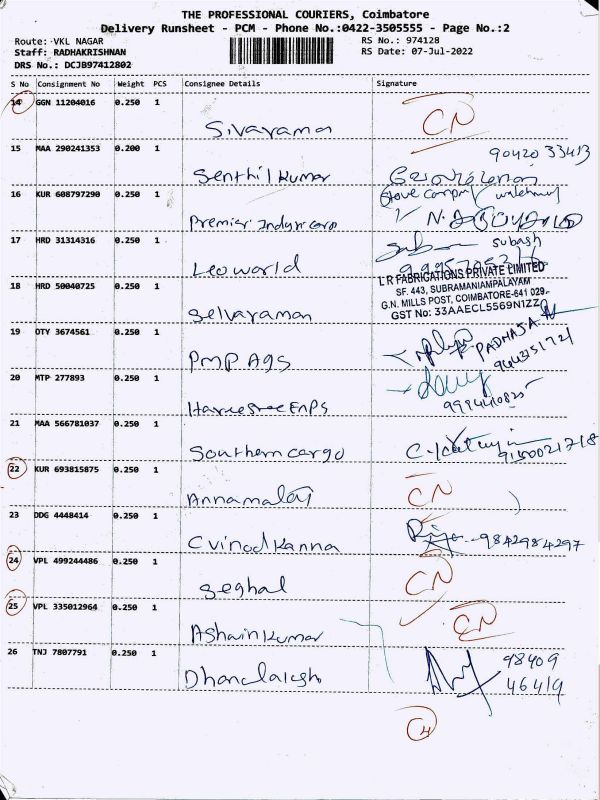 THE PROFESSIONAL COURIERS, Coimbatore
Delivery Runsheet - PCM - Phone No.:0422-3505555 - Page No.:2
Route: VKL NAGAR RS No.: 974128
Staff: RADHAKRISHNAN RS Date: 07-Jul-2022
DRS No.: DCJB97412802
S No Consignment No Weight PCS Consignee Details Signature
14 GGN 11204016 0.250 1
Sivaraman CN
15 MAA 290241353 0.200 1 90420 33413
Senthil Kumar
16 KUR 608797290 0.250 1
Premier
17 HRD 31314316 0.250 1 subash
Leo world
L R FABRICATIONS PRIVATE LIMITED
18 HRD 50040725 0.250 1 SF. 443, SUBRAMANIAMPALAYAM
G.N. MILLS POST, COIMBATORE-641 029.
Selvaraman GST No: 33AAECL5569N1ZZ
19 OTY 3674561 0.250 1 PADMAJA
PMP Ags 9443151721
20 MTP 277893 0.250 1
Hareesree EnPs
21 MAA 566781037 0.250 1
Southern cargo
22 KUR 693815875 0.250 1 CN
Annamalai
23 DDG 4448414 0.250 1
C vinod Kanna 9842984297
24 VPL 499244486 0.250 1 CN
Seghal
25 VPL 335012964 0.250 1 CN
Ashwin Kumar
26 TNJ 7807791 0.250 1 98409
Dhanalaksh 46419